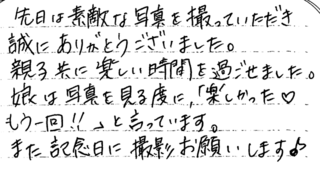 先日は素敵な写真を撮っていただき
誠にありがとうございました。
親子共に楽しい時間を過ごせました。
娘は写真を見る度に、「楽しかった♡
もう一回!!」と言っています。
また記念日に撮影お願いします♪